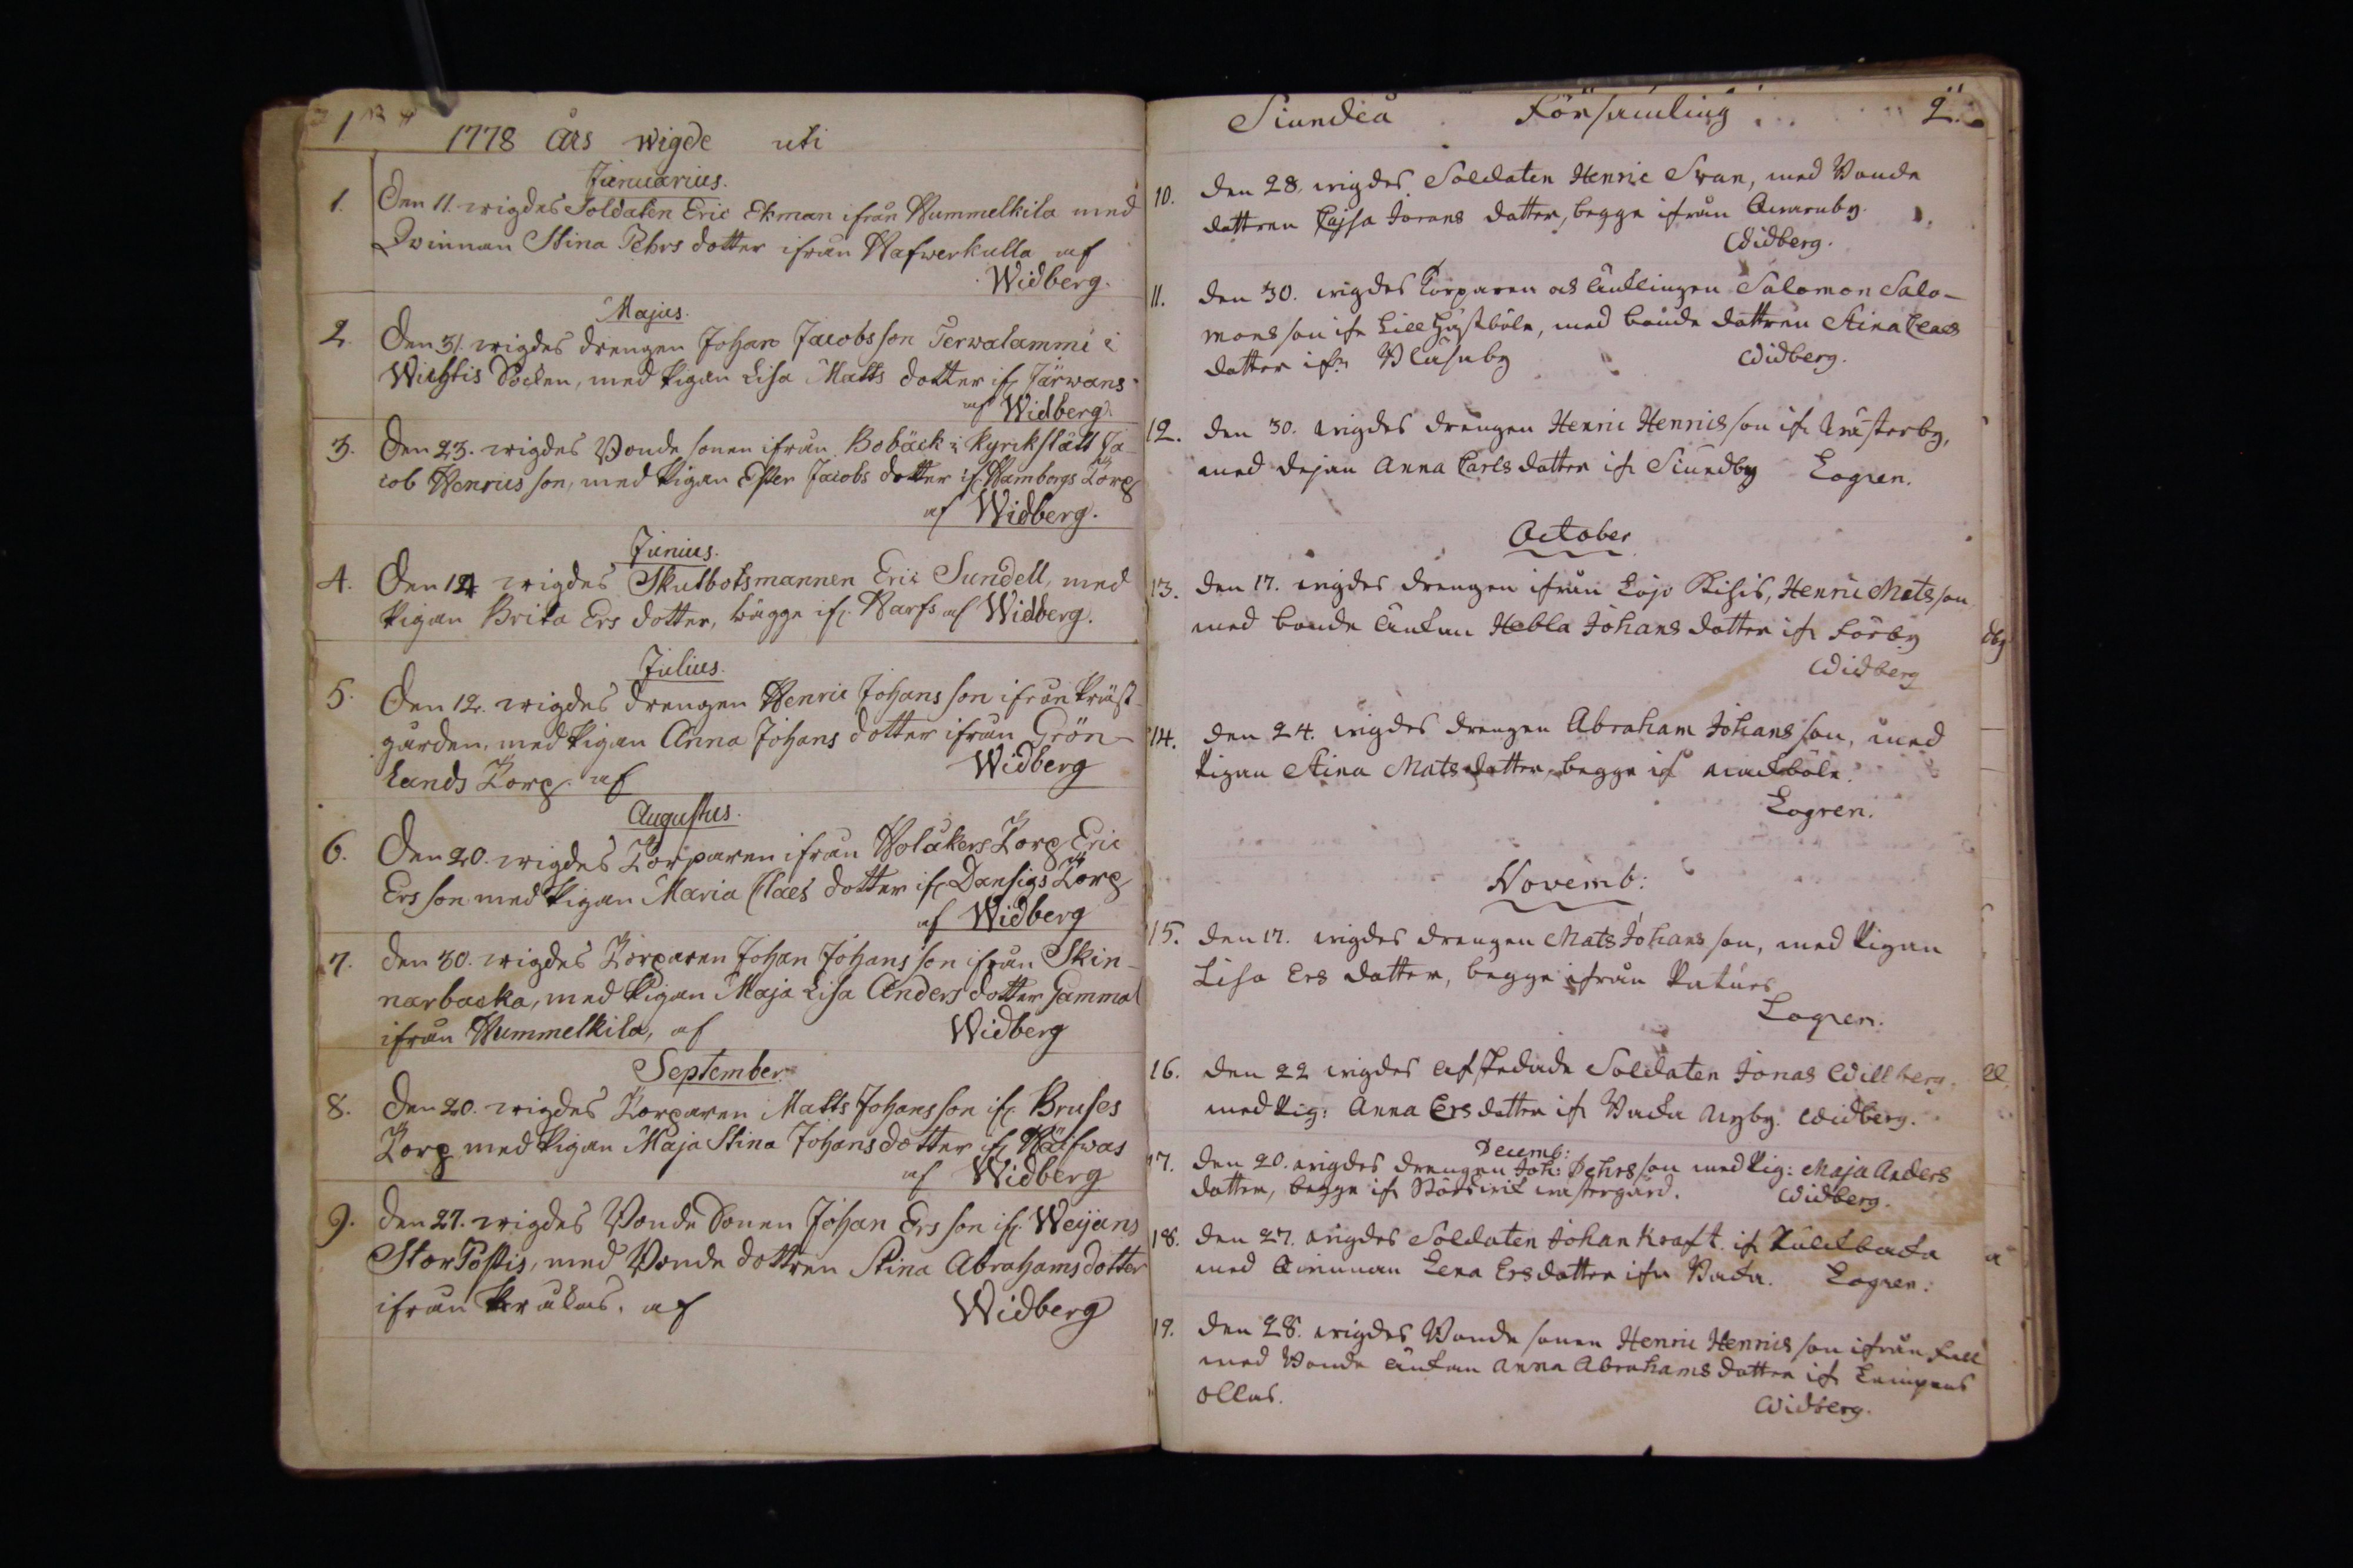 1
1778 Års wigde uti
Januarius.
1. Den 11. wigdes Soldaten Eric Ekman ifrån Hummelkila med
Qvinnan Stina Pehrs dotter ifrån Hafwerkulla af
Widberg.
Majus.
2. Den 31. wigdes drengen Johan Jacobs son Terwalammi i
Wichtis Socken, med Pigan Lisa Matts dotter ifr. Järwans
af Widberg.
3. Den 23. wigdes Bonde sonen ifrån Bobäck i Kyrckslätt Ja-
cob Henrics son, med Pigan Ester Jacobs dotter ifr. Hambergs Torp
af Widberg.
Junius.
4. Den 14 wigdes Skutbotsmannen Eric Sundell, med
Pigan Brita Ers dotter, bägge ifr. Harfs af Widberg.
Julius.
5. Den 12. wigdes drengen Henric Johans son ifrån Präst-
gården, med Pigan Anna Johans dotter ifrån Grön-
Lands Torp. af Widberg
Augustus.
6. Den 20. wigdes Torparen ifrån Holåkers Torp Eric
Ers son med Pigan Maria Claes dotter ifr. Dansigs Torp
af Widberg
7. Den 30. wigdes Torparen Johan Johans son ifrån Skin-
narbacka, med Pigan Maja Lisa Anders dotter Gammal
ifrån Hummelkila, af Widberg
September
8. Den 20. wigdes Torparen Matts Johans son ifr. Bruses
Torp med Pigan Maja Stina Johans dotter ifr. Räfwas
af Widberg
9. Den 27. wigdes Bonde Sonen Johan Ers son ifr. Weijans
Stor Postis, med Bonde dottren Stina Abrahams dotter
ifrån Krukas. af Widberg
Siundeå Församling 2.
10. Den 28. wigdes Soldaten Henric Swan, med Bonde
dottren Cajsa Jörans dotter, begge ifrån Qwarnby.
Widberg.
11. Den 30. wigdes Torparen och Änklingen Salomon Salo-
mons son ifr. Lill Hästböle, med bonde dottren Stina Claes
dotter ifrn Vläsby Widberg.
12. Den 30. wigdes drengen Henric Henrics son ifr. Wästerby,
med dejan Anna Carls dotter ifr Siundby Logren.
October
13. Den 17. wigdes drengen ifrån Lojo Kihis, Henric Mats son
med bonde änkan Hebla Johans dotter ifr Förby
Widberg
14. Den 24. wigdes drengen Abraham Johans son, med
Pigan Stina Mats dotter, begge ifr Nackböle.
Logren.
Novemb:
15. Den 17. wigdes drengen Mats Johans son, med Pigan
Lisa Ers dotter, begge ifrån
Logren.
16. Den 22 wigdes Afskedade Soldaten Jonas Willberg.
med Pig: Anna Ers dotter ifr Backa Nyby. Widberg.
Decemb:
17. Den 20. wigdes drengen Joh: Pehrs son med Pig: Maja Anders
dotter, begge ifr Störsvik wästergård. Widberg.
18. Den 27. wigdes Soldaten Johan Kraft ifr Kullbacka
med Qvinnan Lena Ers dotter ifrn Backa. Logren.
19. Den 28. wigdes Bonde sonen Henric Henrics son ifrån Fall
med Bonde änkan Anna Abrahams dotter ifr Lempans
Ollas. Widberg.